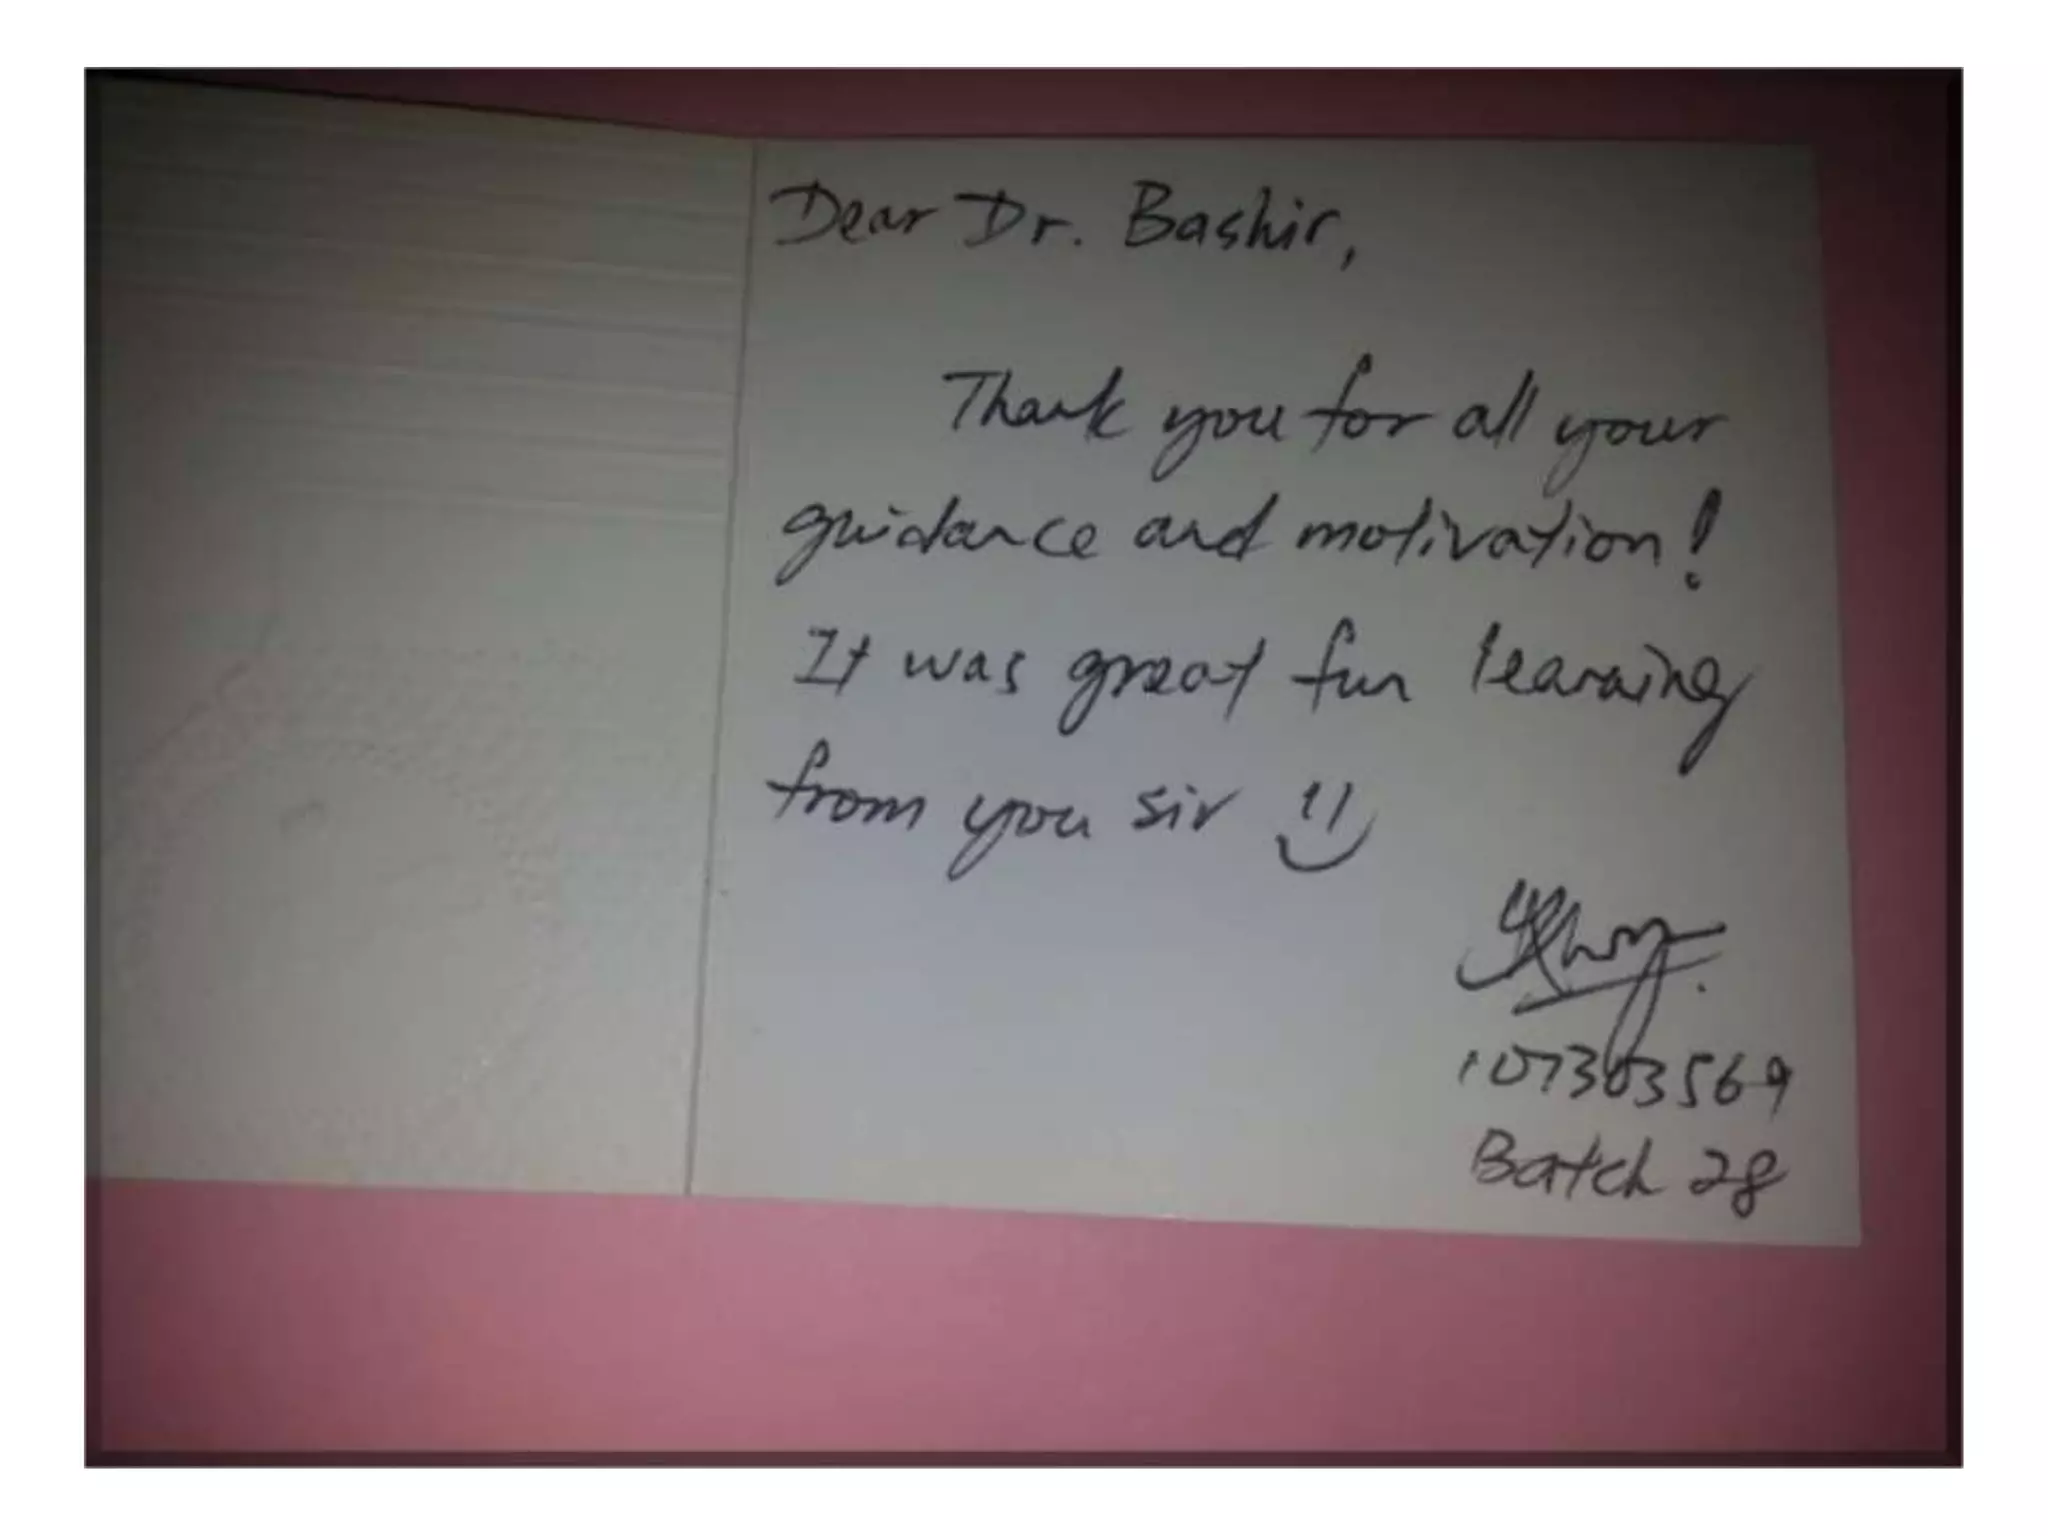 Dear Dr. Bashir,
Thank you for all your
guidance and motivation!
It was great fun learning
from you sir
107303569
Batch 28